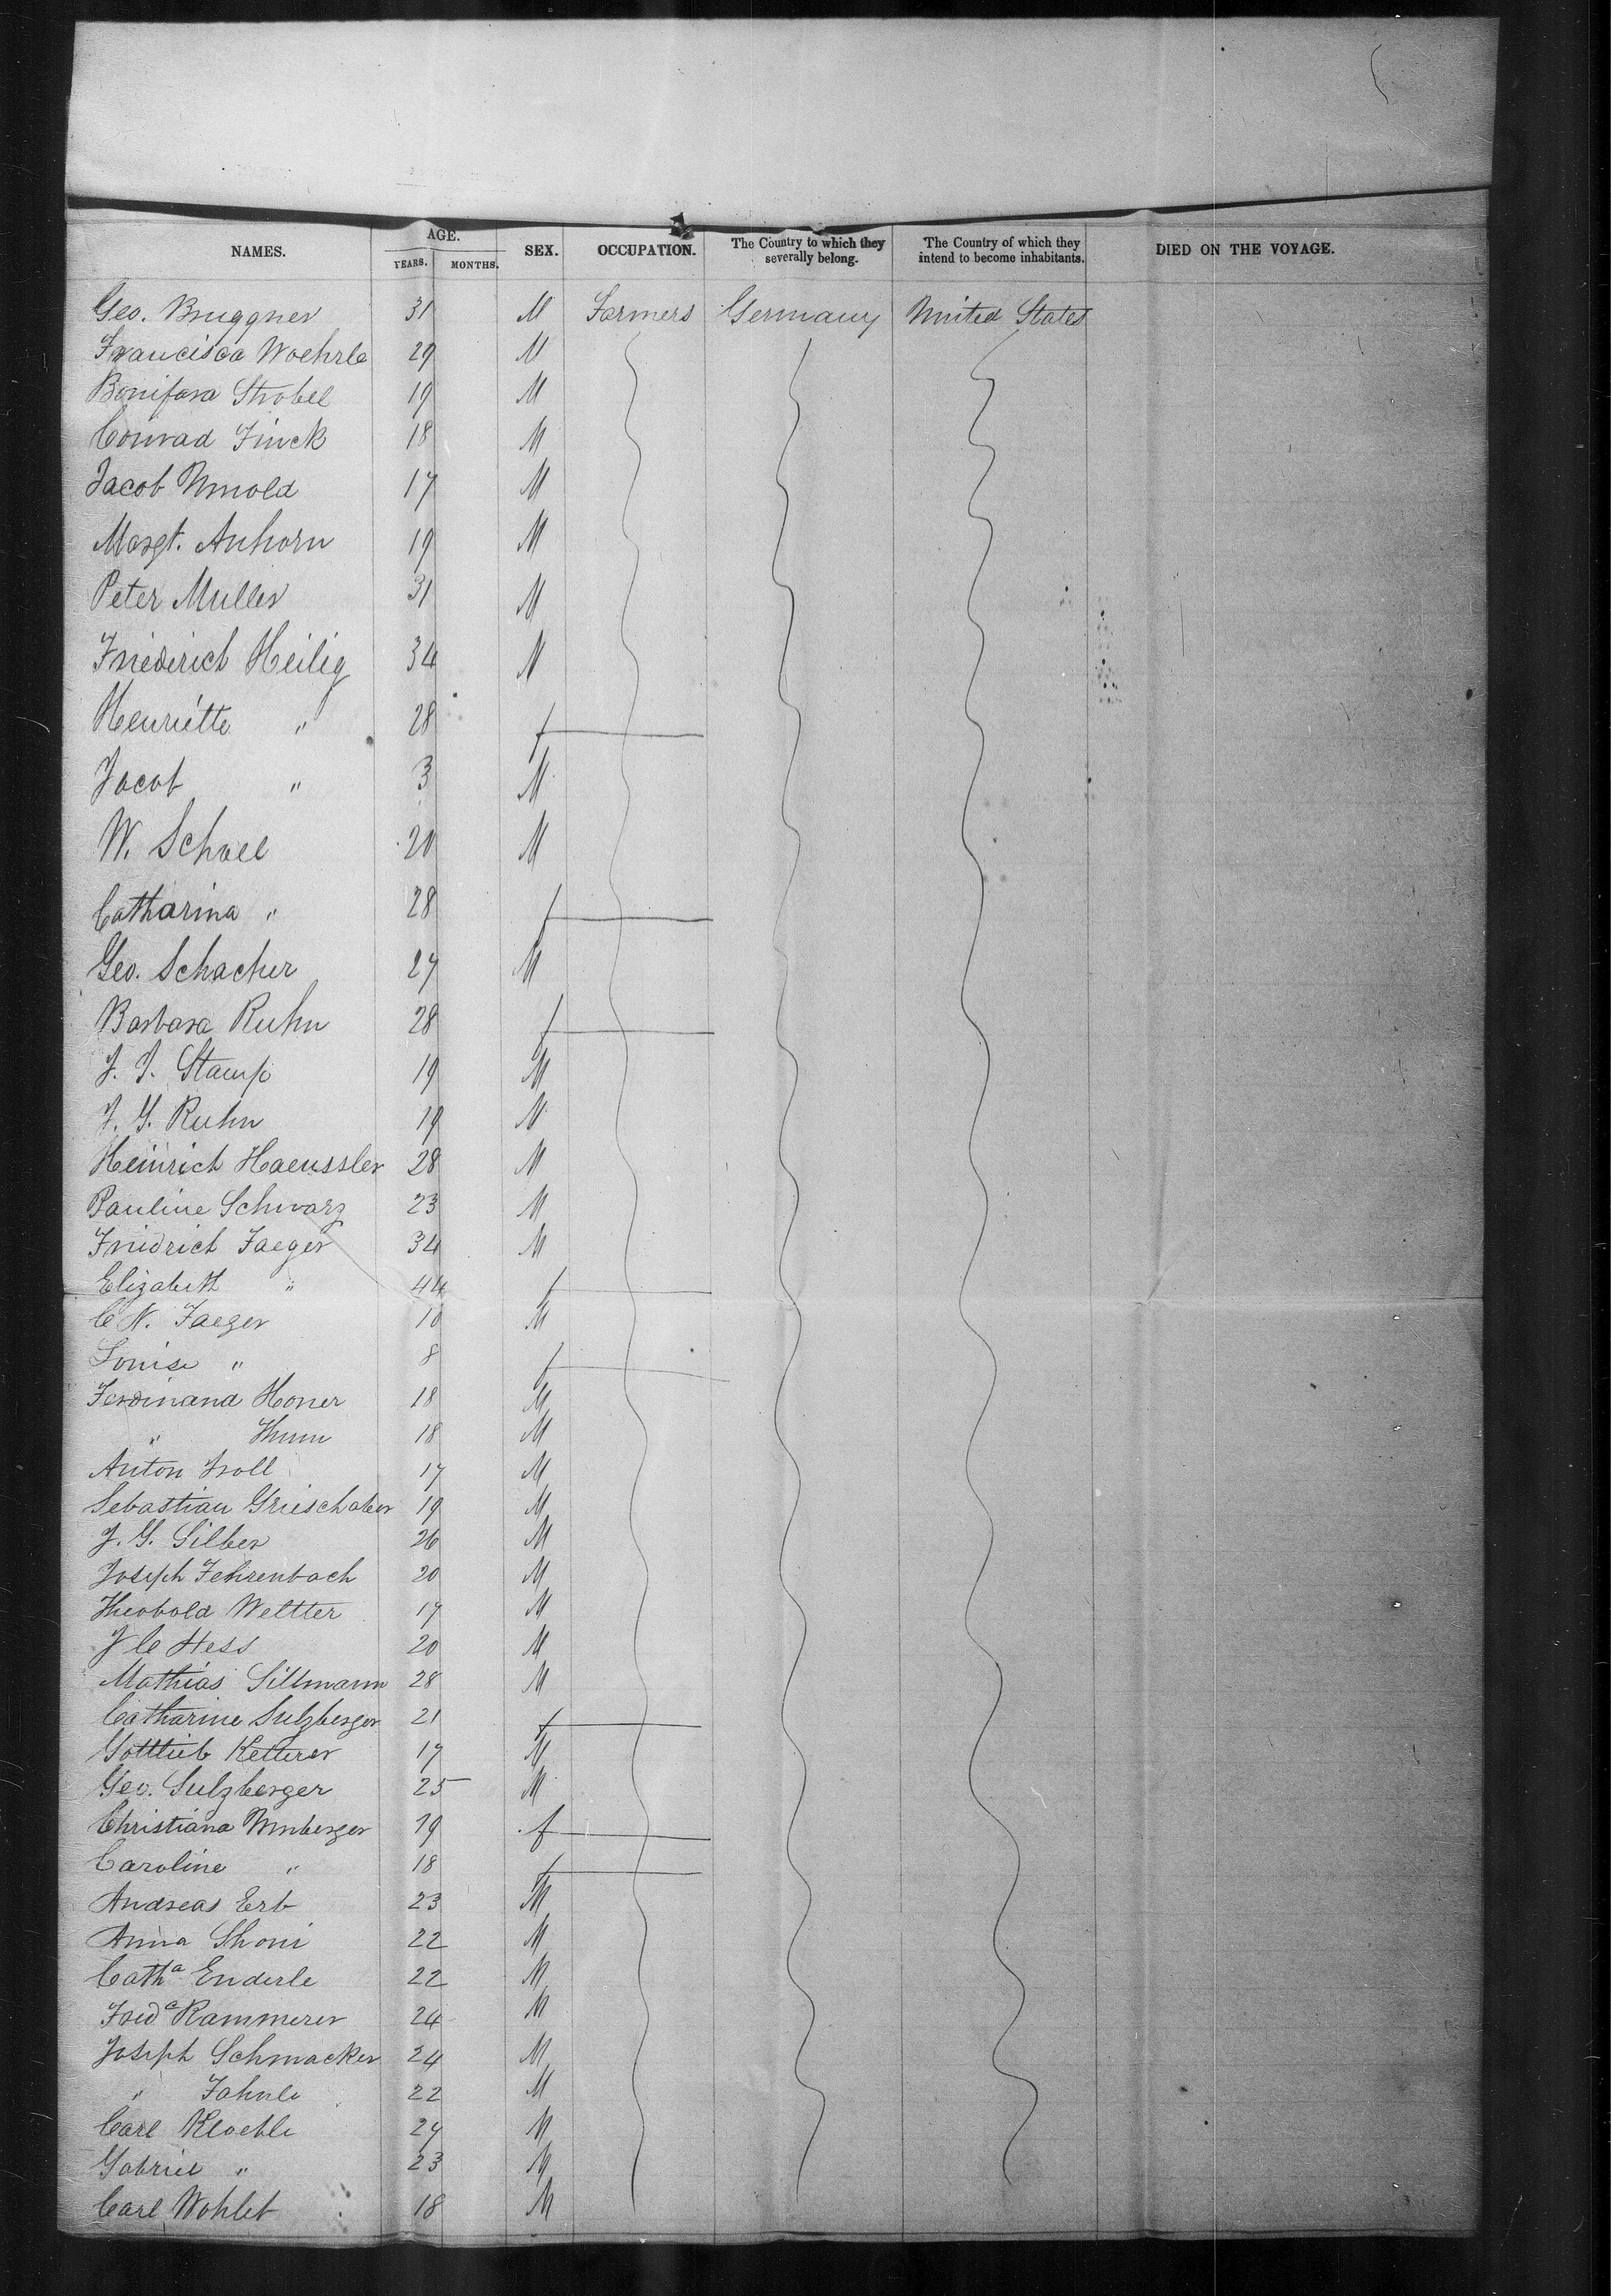 NAMES. AGE. YEARS. MONTHS. SEX. OCCUPATION. The Country to which they severally belong. The Country of which they intend to become inhabitants. DIED ON THE VOYAGE.
Geo. Bruggner 31 M Farmers Germany United States
Francisca Woehrle 29 M
Bonifava Strobel 19 M
Conrad Finck 18 M
Jacob 17 M
Margt. Anhorn 19 M
Peter Muller 31 M
Friederich Heilig 34 M
Henriette " 28 f
Jacob " 3 M
W. Scholl 20 M
Catharina " 28 f
Geo. Schacher 27 M
Barbara Ruhn 28 f
J. J. Stamp 19 M
J. G. Ruhn 19 M
Heinrich Haeussler 28 M
Pauline Schwarz 23 M
Friedrich Jaeger 34 M
Elizabeth " 44 f
C N. Jaeger 10 M
Louise " 8 f
Ferdinand Honer 18 M
" Thum 18 M
Anton Troll 17 M
Sebastian Grieschaber 19 M
J. G. Silber 26 M
Joseph Fehrenbach 20 M
Theobold Weltter 17 M
J C Hess 20 M
Mathias Sillmann 28 M
Catharine Sulzberger 21 f
Gottlieb Ketterer 17 M
Geo. Sulzberger 25 M
Christiana 19 f
Caroline " 18 f
Andreas Erb 23 M
Anna Shoni 22 M
Catha Enderle 22 M
Fredc Kammerer 24 M
Joseph Schmacker 24 M
" Jahnle 22 M
Carl Kloeble 24 M
Gabriel " 23 M
Carl Wohleb 18 M